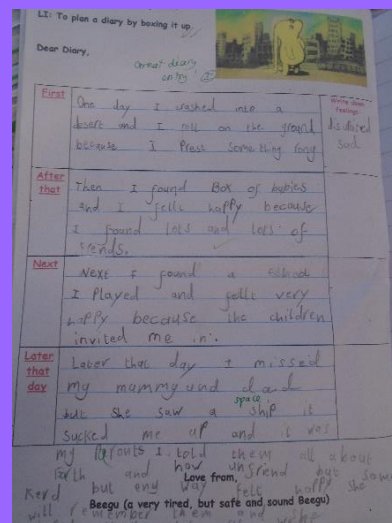 LI: To plan a diary by boxing it up.
Dear Diary,
Great diary
entry!
First
One day I crashed into a
desert and I roll on the ground
because I Press Something rong
Write down
feelings
sad
After
that
Then I found Box of babies
and I felt happy because
I found lots and lots of
frends.
Next
Next I found a school
I Played and felt very
happy because the children
invited me in.
Later
that
day
Later that day I missed
my mammy and dad
but she saw a space ship it
Sucked me up and it was
my I told them all about
Earth and how unfriend but some
kerd but eny way felt happy she
Love from,
Beegu (a very tired, but safe and sound Beegu)
will remember them and